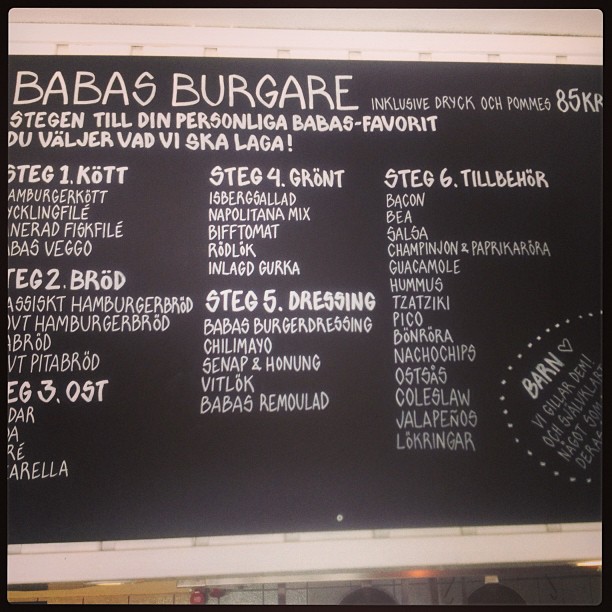 BABAS BURGARE INKLUSIVE DRYCK OCH POMMES 85KR
STEGEN TILL DIN PERSONLIGA BABAS-FAVORIT
DU VÄLJER VAD VI SKA LAGA!
STEG 1. KÖTT
AMBURGERKÖTT
YCKLINGFILÉ
NERAD FISKFILÉ
BAS VEGGO
TEG 2. BRÖD
ASSISKT HAMBURGERBRÖD
OVT HAMBURGERBRÖD
ABRÖD
VT PITABRÖD
EG 3. OST
DAR
DA
RÉ
ARELLA
STEG 4. GRÖNT
ISBERGSALLAD
NAPOLITANA MIX
BIFFTOMAT
RÖDLÖK
INLAGD GURKA
STEG 5. DRESSING
BABAS BURGERDRESSING
CHILIMAYO
SENAP & HONUNG
VITLÖK
BABAS REMOULAD
STEG 6. TILLBEHÖR
BACON
BEA
SALSA
CHAMPINJON & PAPRIKARÖRA
GUACAMOLE
HUMMUS
TZATZIKI
PICO
BÖNRÖRA
NACHOCHIPS
OSTSÅS
COLESLAW
JALAPEÑOS
LÖKRINGAR
BARN ♡
VI GILLAR DEM!
OCH SJÄLVKLART
NÅGOT SOM
DERAS